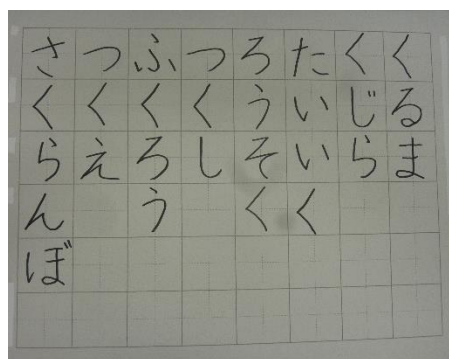 くるま
くじら
たいいく
ろうそく
つくし
ふくろう
つくえ
さくらんぼ